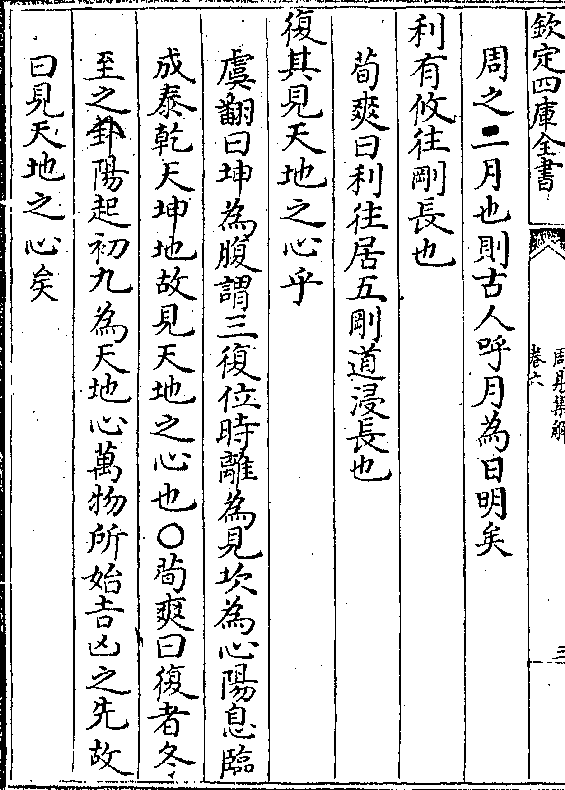 欽定四庫全書
周易集解
卷六
三
周之二月也則古人呼月為日明矣
利有攸往剛長也
荀爽曰利往居五剛道浸長也
復其見天地之心乎
虞翻曰坤為腹謂三復位時離為見坎為心陽息臨
成泰乾天坤地故見天地之心也〇荀爽曰復者冬
至之卦陽起初九為天地心萬物所始吉凶之先故
曰見天地之心矣